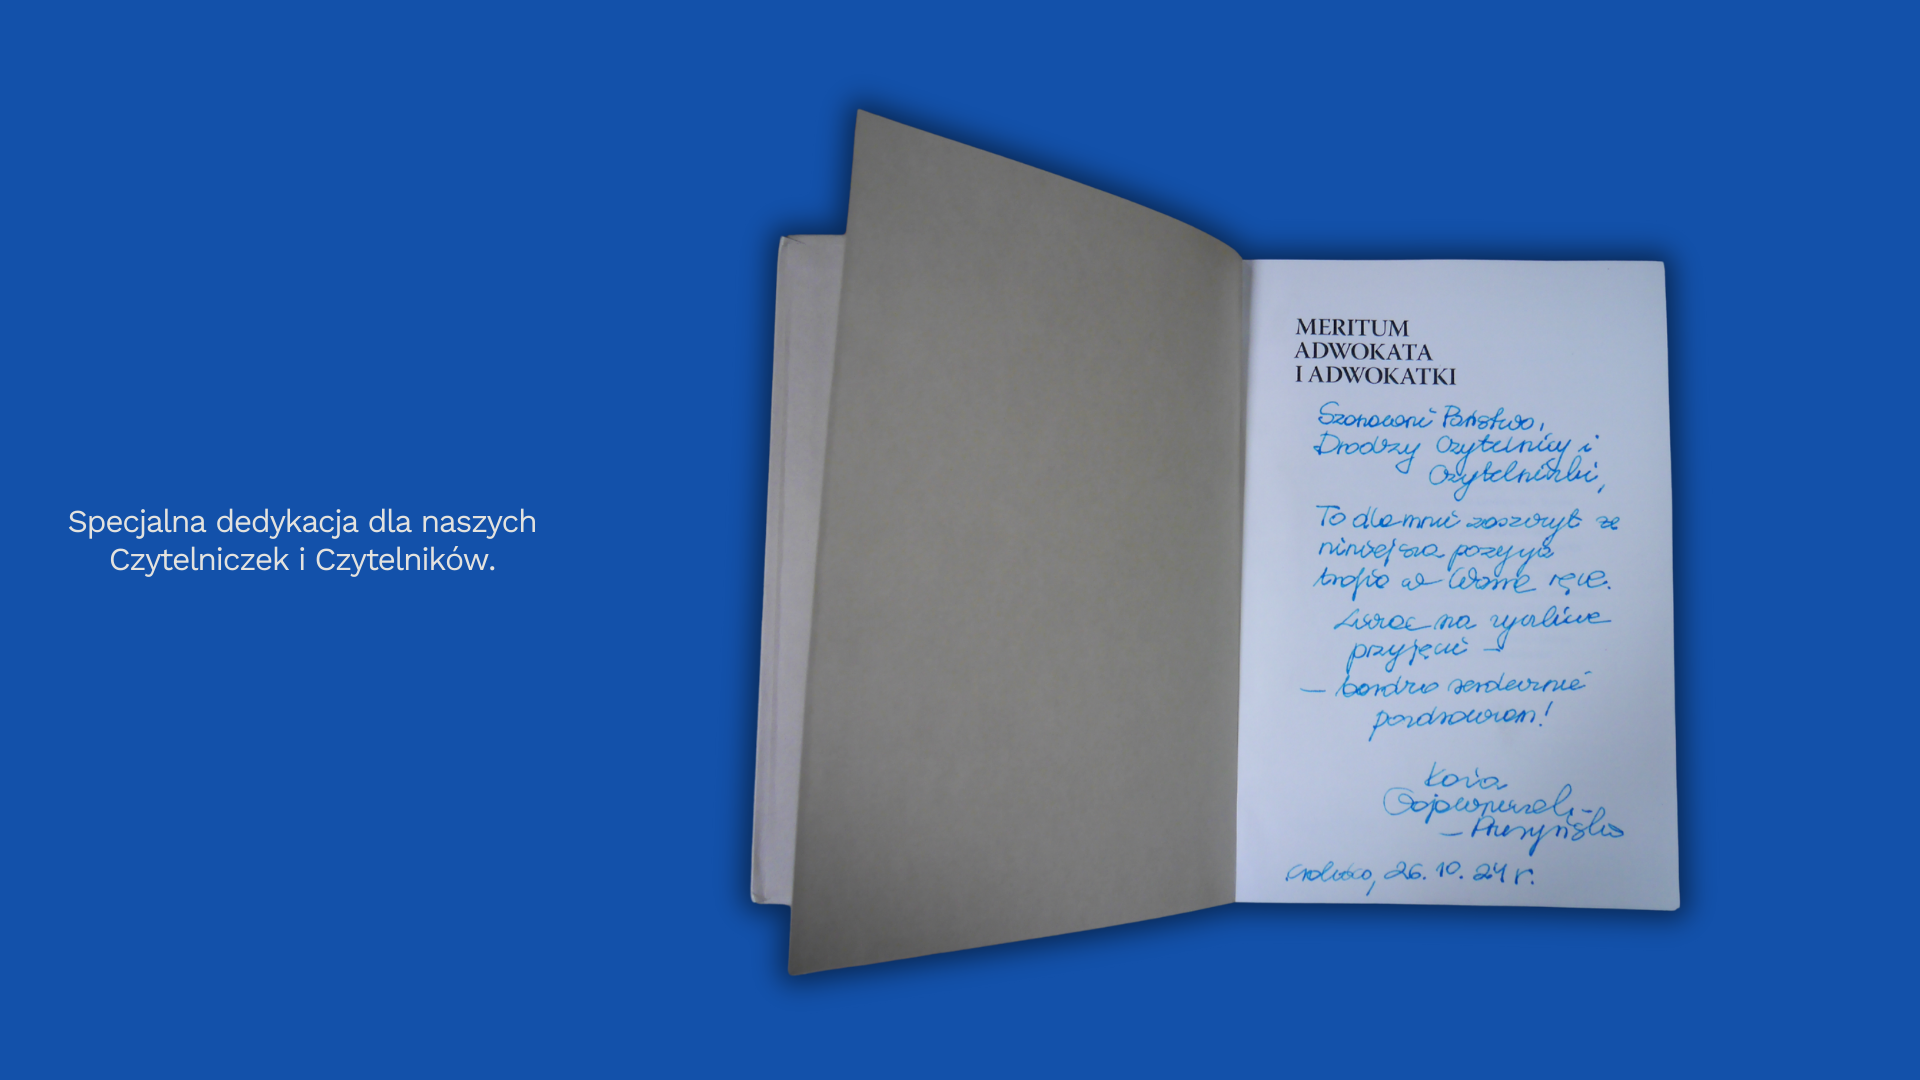 Specjalna dedykacja dla naszych
Czytelniczek i Czytelników.
MERITUM
ADWOKATA
I ADWOKATKI
Szanowni Państwo,
Drodzy Czytelnicy i
Czytelniczki,
To dla mnie zaszczyt że
niniejsza pozycja
trafia w Wasze ręce.
Licząc na życzliwe
przyjęcie –
– bardzo serdecznie
pozdrawiam!
Kasia
26.10.24 r.